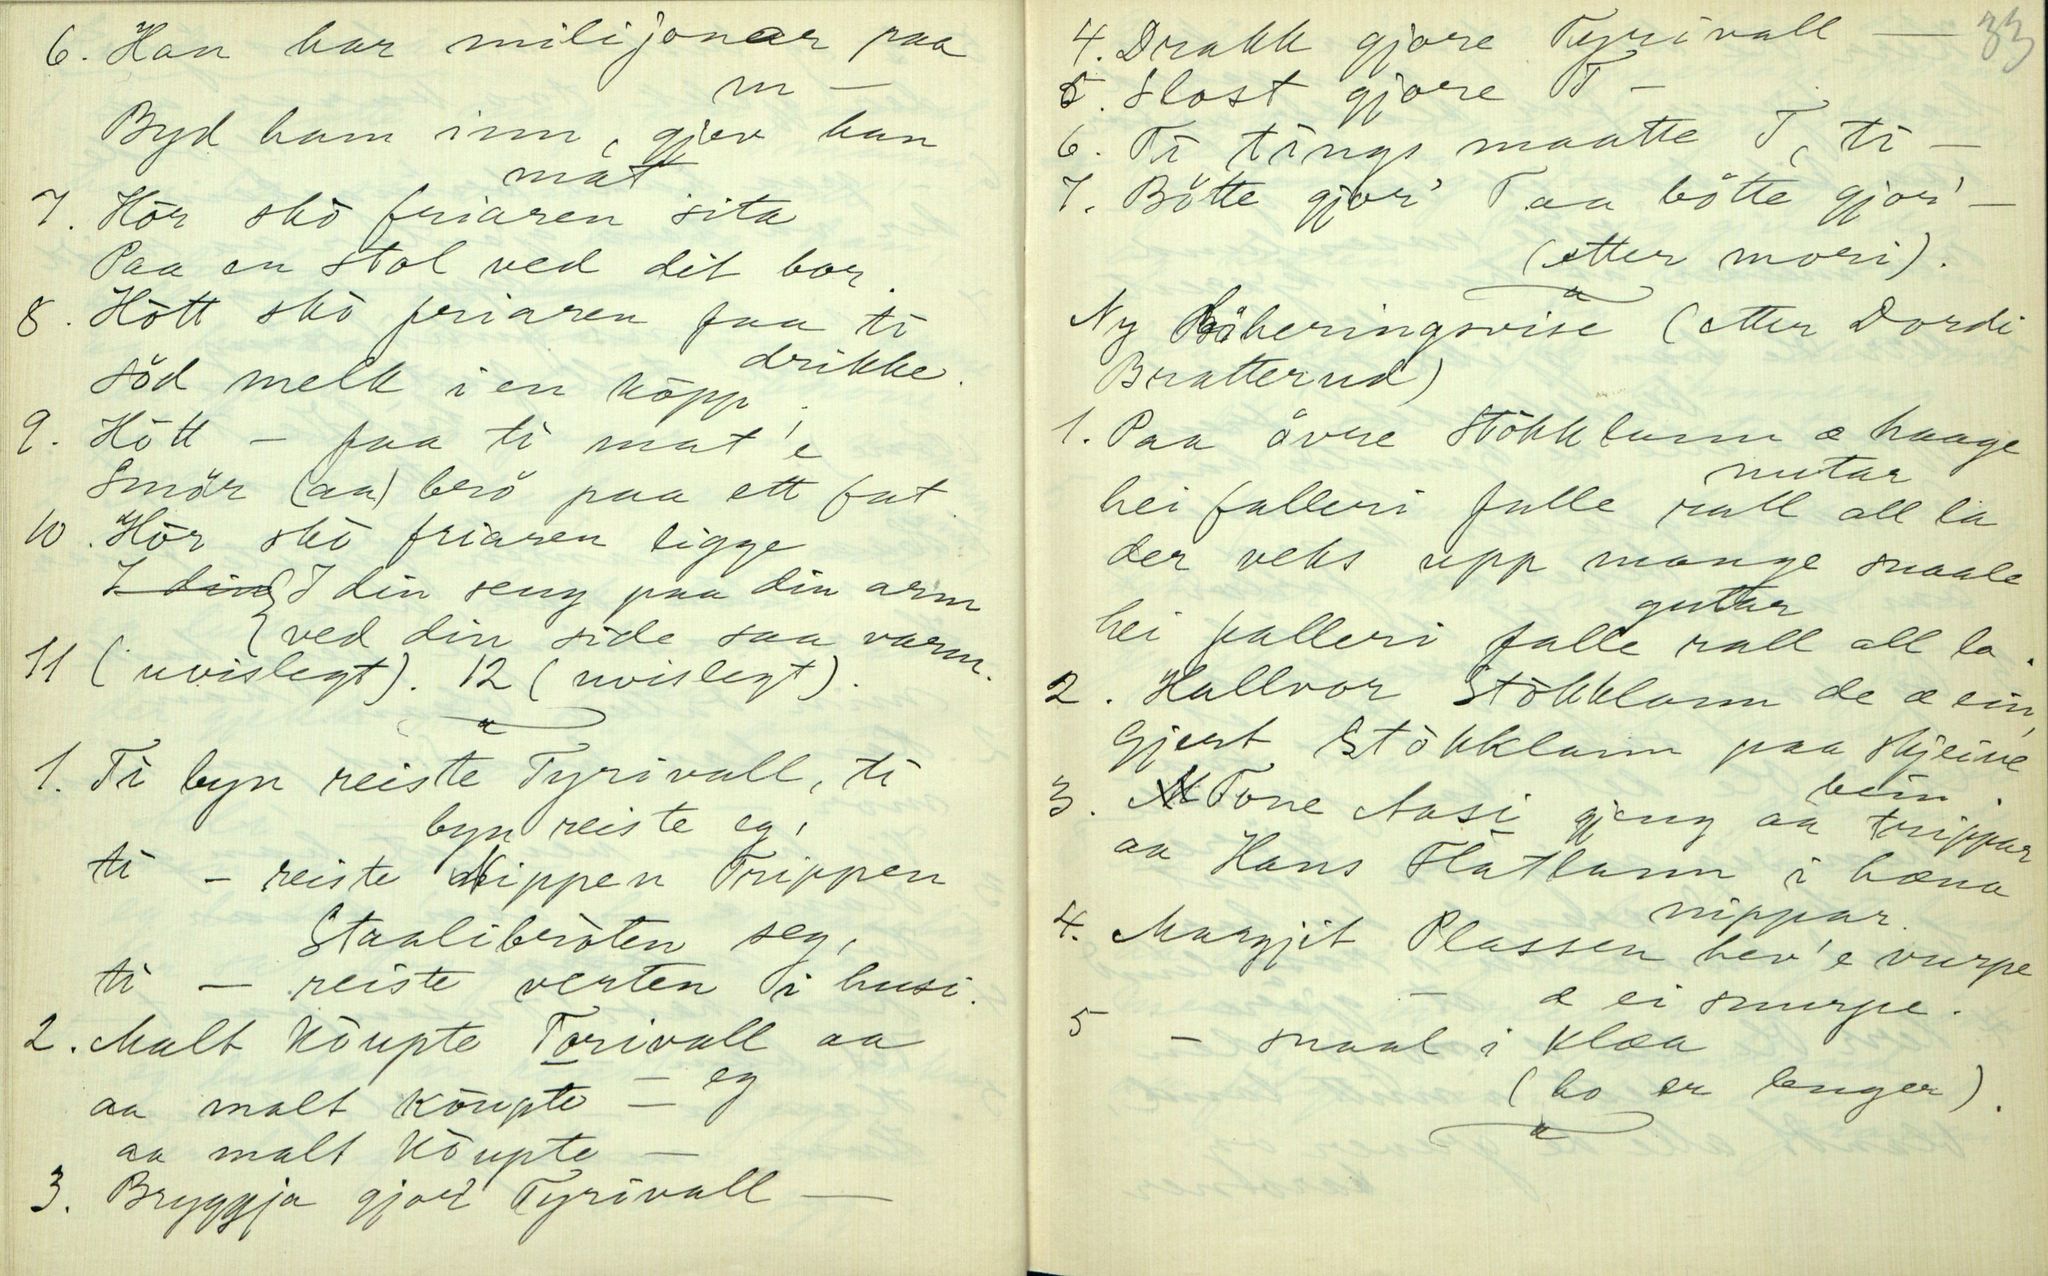 6. Han har milijonar paa
m —
Byd ham inn, gjev han
mat
7. Hör skò friaren sita
Paa en stol ved dit bor.
8. Hött skò friaren faa ti
drikke.
söd melk i en köpp!
9. Hött — faa ti mat'e
Smör (aa) brö paa ett fat.
10. Hör skò friaren ligge
I din seng paa din arm
ved din side saa varm.
11 (uvislegt). 12 (uvislegt).
1. Ti byn reiste Tyrivall, ti
byn reiste eg,
ti — reiste Nippen Trippen
Staalibròten seg,
ti — reiste verten i husi.
2. Malt köupte Torivall aa
aa malt köupte — eg
aa malt köupte —
3. Bryggja gjord Tyrivall —
33
4. Drakk gjore Tyrivall —
5. Slost gjore T —
6. Ti tings maatte T, ti —
7. Bötte gjor' T aa bötte gjor' —
(etter mori).
Ny Böheringsvise (etter Dordi
Bratterud)
1. Paa övre Stökklann æ haage
nutar
hei falleri falle rall all la
der veks upp mange snaale
gutar
hei falleri falle rall all la.
2. Hallvor Stökklann de æ ein,
Gjert Stökklann paa skjeive
bein.
3. Tone Aasi gjeng aa trippar
aa Hans Flatlann i hæna
nippar.
4. Margjit Plassen hev'e vurpe
— æ ei snurpe.
5 — snaal i klæa
(ho er lenger).